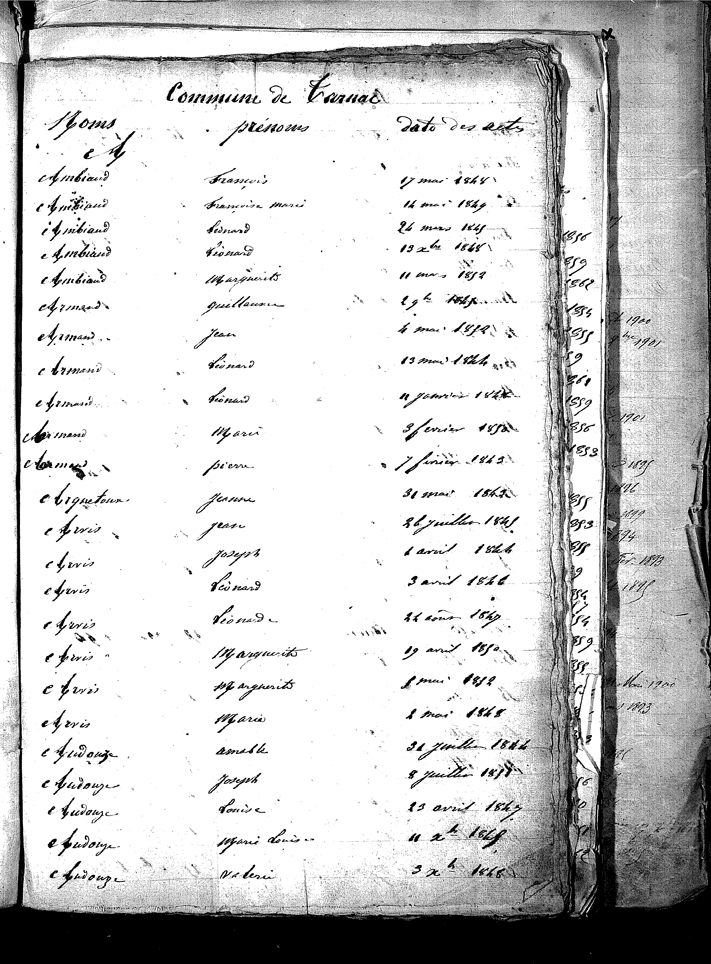 Commune de Tarnac
Noms prénoms date des actes
A
Ambiaud François 17 mai 1848
Ambiaud Françoise marie 14 mai 1849
Ambiaud Léonard 24 mars
Ambiaud Léonard 13 xbre 1848
Ambiaud Marguerite 11 mars 1852
Armand guillaume 2 9b
Armand Jean 4 mai 1852
Armand Léonard 13 mai 1844
Armand Léonard 11 janvier
Armand Marie 3 fevrier
Armand pierre 7 février 1843
Arquetoux Jeanne 31 mai 1842
Arvis jean 26 juillet
Arvis Joseph 1 avril 1844
Arvis Léonard 3 avril 1846
Arvis Léonarde 24 août 1847
Arvis Marguerite 19 avril 1850
Arvis Marguerite mai 1852
Arvis Marie 2 mai 1848
Audouze amable 31 Juillet 1844
Audouze Joseph 8 juillet
Audouze Louise 23 avril 1847
Audouze Marie Louise 11 xb
Audouze valerie 3 xb 1848
1856
859
1862
1854
1855
59
861
1859
1856
1853
855
853
1900
1901
1901
1895
1896
1899
1894
1893
1895
1900
1893